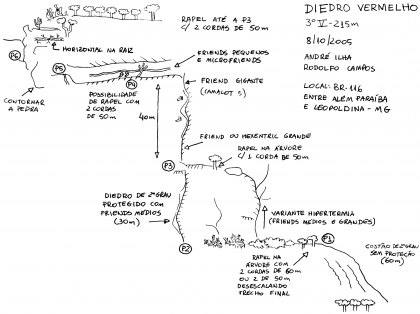 DIEDRO VERMELHO
3º V - 215m
8/10/2005
ANDRÉ ILHA
RODOLFO CAMPOS
LOCAL: BR-116
ENTRE ALÉM PARAÍBA
E LEOPOLDINA - MG
RAPEL ATÉ A P3
C/ 2 CORDAS DE 50m
HORIZONTAL NA RAIZ
P6
CONTORNAR
A PEDRA
FRIENDS PEQUENOS
E MICROFRIENDS
P5
P4
POSSIBILIDADE
DE RAPEL COM
2 CORDAS
DE 50m
40m
FRIEND GIGANTE
(CAMALOT 5)
FRIEND OU HEXENTRIC GRANDE
RAPEL NA ÁRVORE
C/ 1 CORDA DE 50m
P3
DIEDRO DE 2º GRAU
PROTEGIDO COM
FRIENDS MÉDIOS
(30m)
VARIANTE HIPERTERMIA
(FRIENDS MÉDIOS E GRANDES)
P2
P1
RAPEL NA
ÁRVORE COM
2 CORDAS DE 60m
OU 2 DE 50m
DESESCALANDO
TRECHO FINAL
COSTÃO DE 2º GRAU
SEM PROTEÇÃO
(60m)